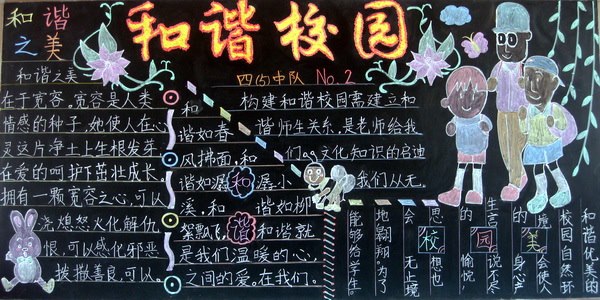 和谐校园
四(5)中队 No.2
和谐
之美
和谐之美
在于宽容,宽容是人类
情感的种子,她使人在心
灵这片净土上生根发芽
在爱的呵护下茁壮成长。
拥有一颗宽容之心,可以
浇熄怒火化解仇
恨,可以感化邪恶
拨撒善良,可以。
和
谐如春
风拂面,和
谐如潺和潺小
溪,和谐如柳
絮飘飞,谐和谐就
是我们温暖的心,
之间的爱,在我们。
构建和谐校园需建立和
谐师生关系,是老师给我
们以文化知识的启迪
我们从无。
和谐优美的
校园自然环
境美会使人
的身心产
生言园说不尽
的愉悦
思校想也
会无止境
地翱翔。为了
能够给学生。